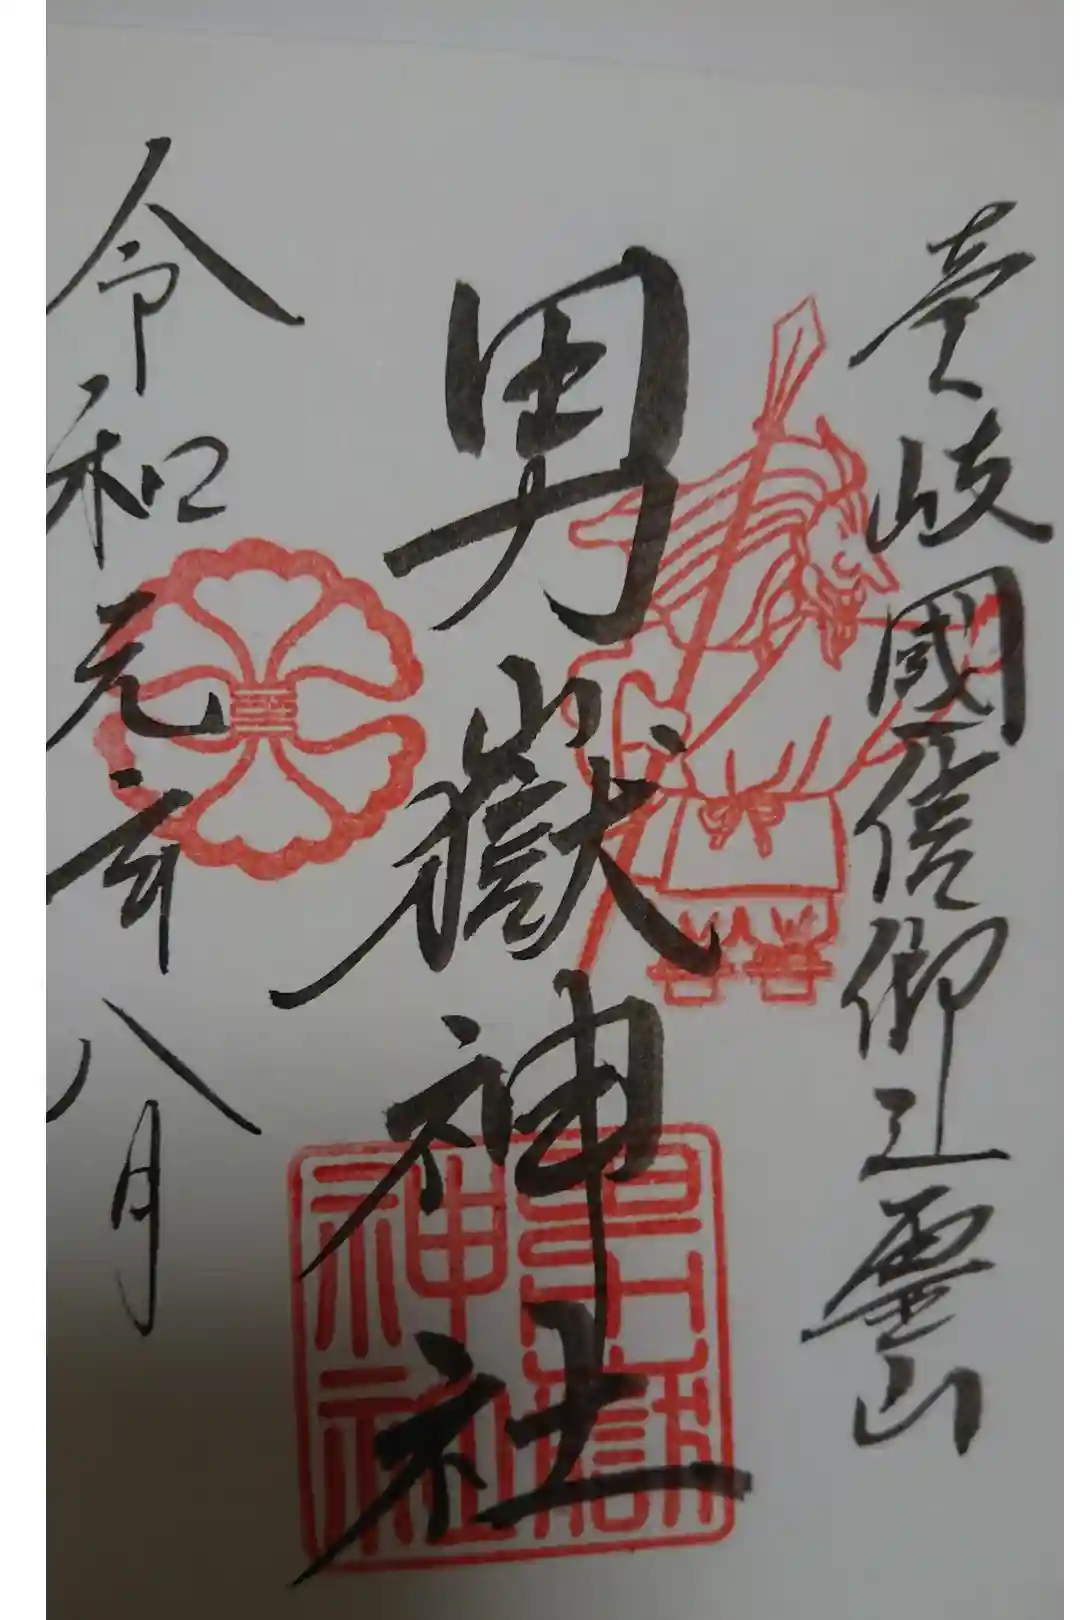 壱岐國信仰之霊山
男嶽神社
令和元年八月
男嶽神社